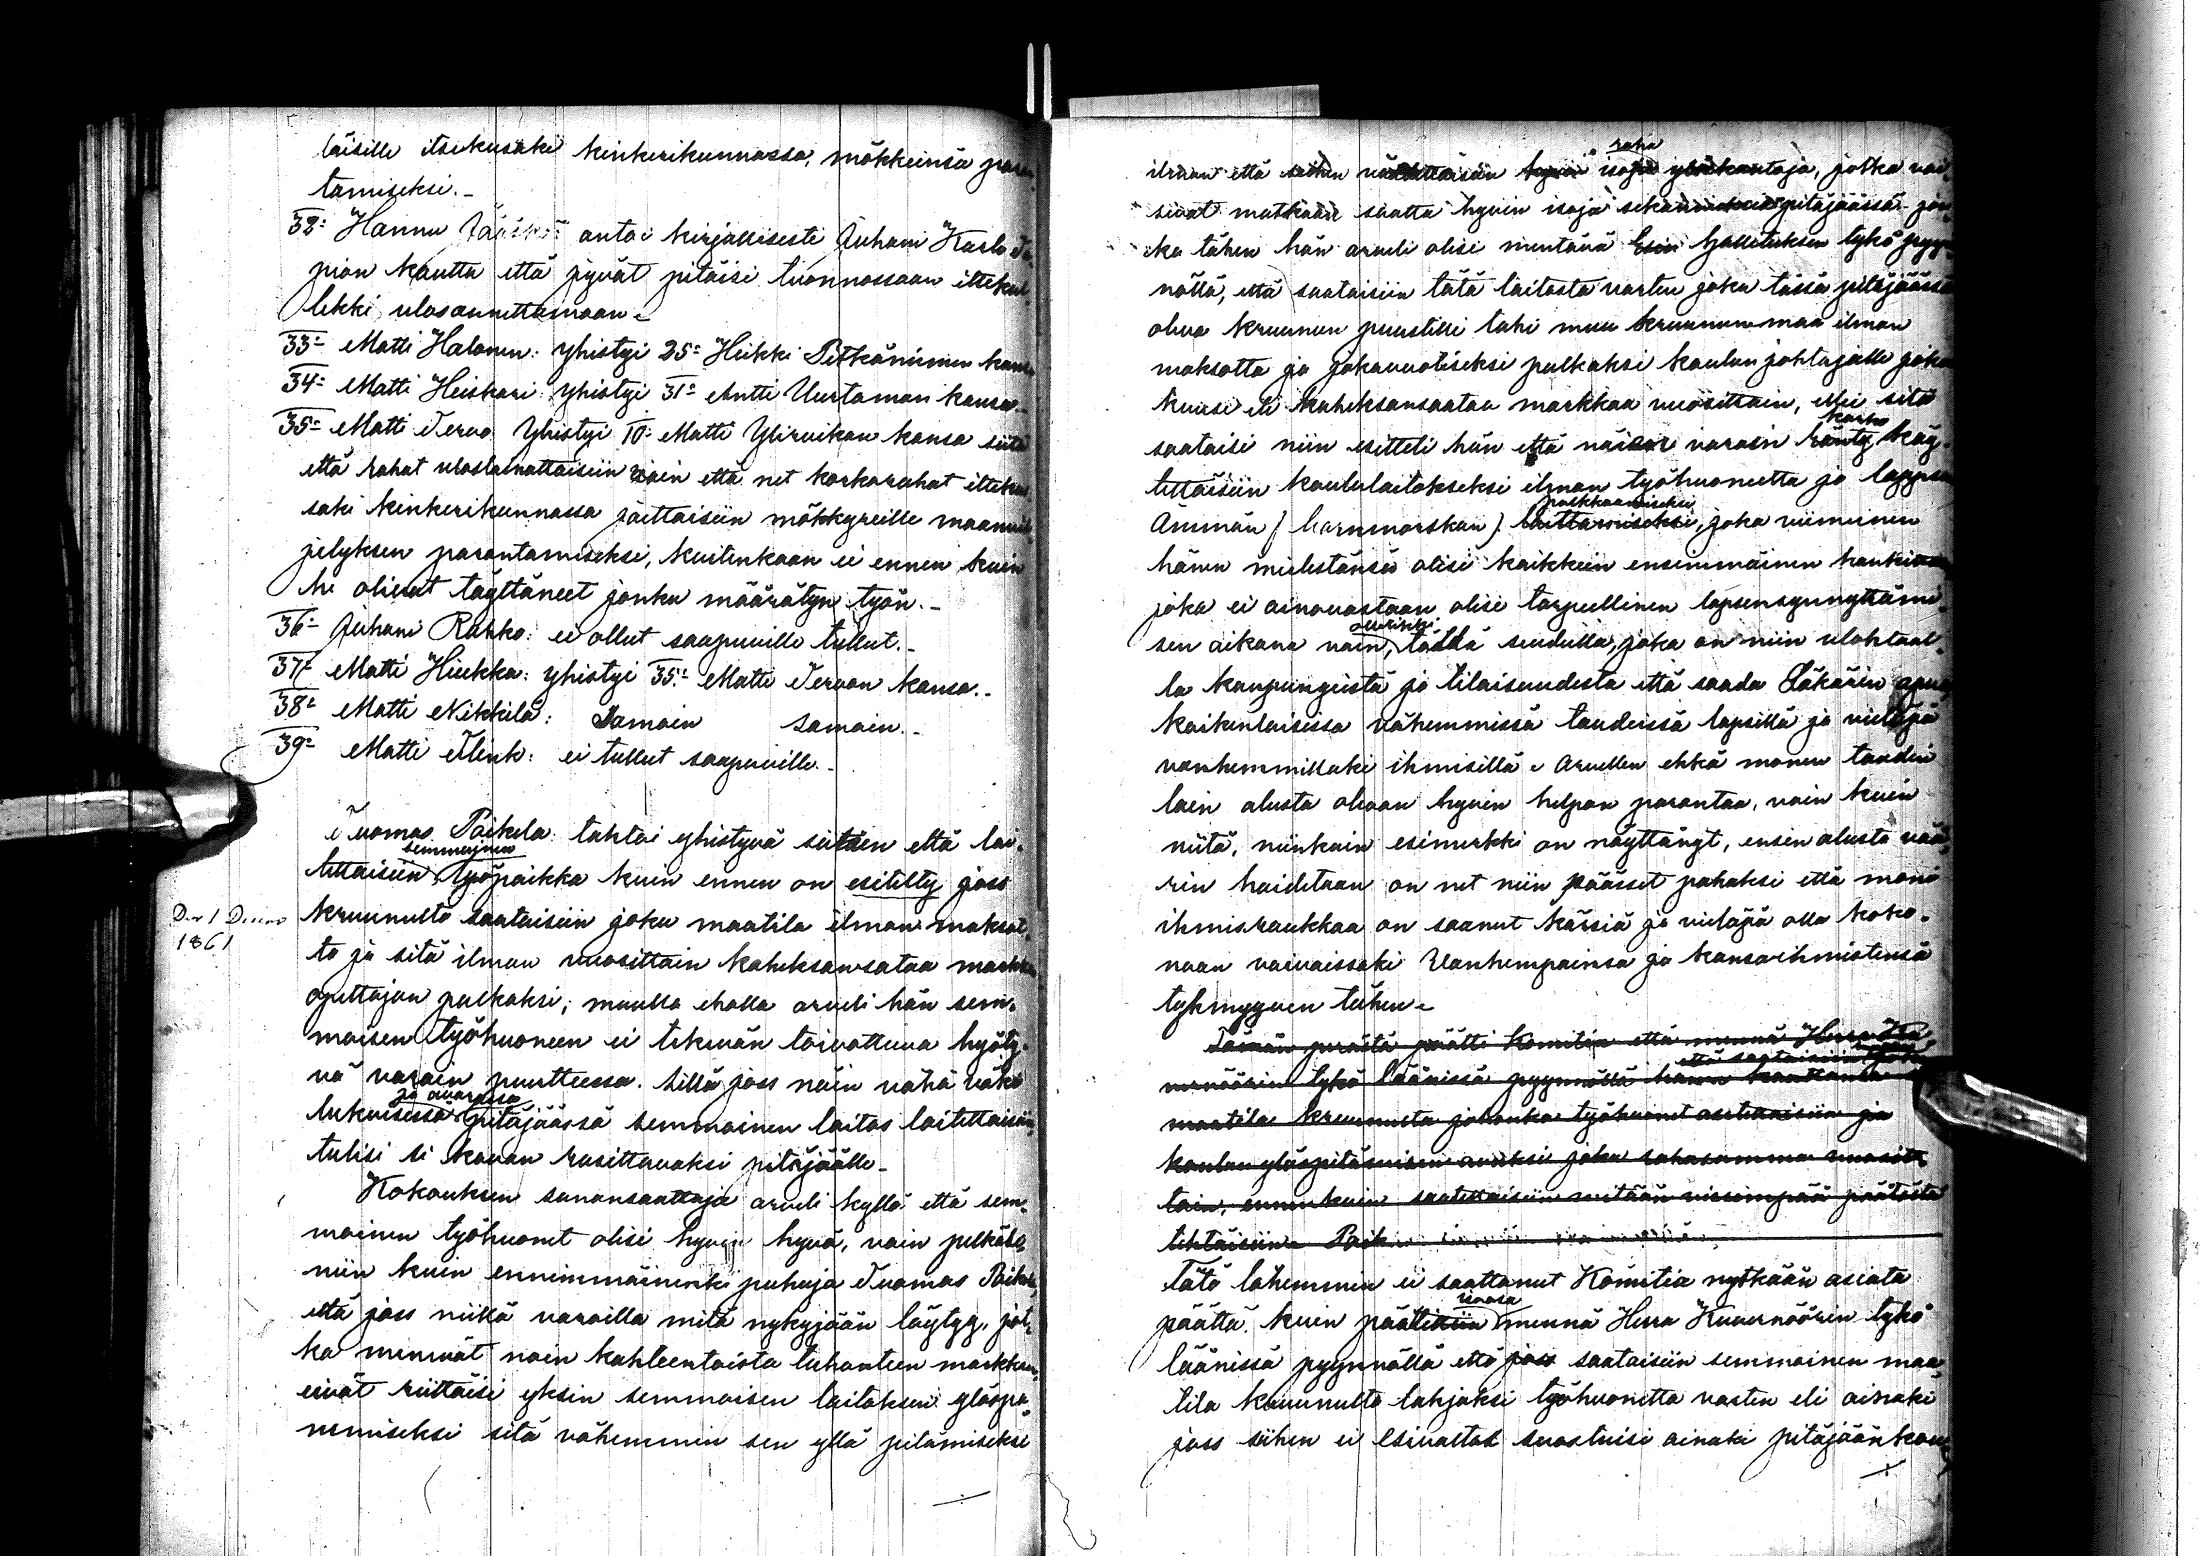 läisille itsekusaki kinkerikunnassa, mökkeinsä para
tamiseksi.-
32: Hannu Jääskö antoi kirjallisesti Juhani Karlo Ta
pion kautta että jyvät pitäisi luonnossaan itseku
lekki ulosannettamaan.
33: Matti Halonen: yhistyi 25: Heikki Pitkäniemen kans
34: Matti Heiskari yhistyi 31: Antti Uurtaman kansa.
35: Matti Tervo Yhistyi 10: Matti Yliruikan kansa siitä
että rahat uloslainattaisiin vain että net korkorahat itseku
saki kinkerikunnassa jaettaisiin mökkyreille maanvil
jelyksen parantamiseksi, kuitenkaan ei ennen kuin
he olisivat täyttäneet jonku määrätyn työn.-
36: Juhani Rahko: ei ollut saapuville tullut.-
37: Matti Hiukka: yhistyi 35: Matti Tervon kansa.-
38: Matti Nikkilä: Samain samain.-
39: Matti Flink: ei tullut saapuville.-
Tuomas Paikela: tahtoi yhistyvä siihen että lai-
semmoinen
tettaisiin työpaikka kuin ennen on esitelty joss
Den 1 Decemb
1861
kruunulta saataisiin joku maatila ilman maksut
ta ja sitä ilman vuosittain kaheksansataa markka
opettajan palkaksi, muulla eholla arveli hän sem-
moisen työhuoneen ei tekevän toivottuva hyöty-
vä varain puutteessa. sillä joss näin vähä väki
ja avarassa
lukuisessa pitäjäässä semmoinen laitos laitettaisiin
tulisi se kovan rasittavaksi pitäjäälle.
Kokouksen sanansaattaja arveli kyllä että sem-
moinen työhuonet olisi hyvin hyvä, vain pelkäsi
niin kuin ennimmäinenki puhuja Tuomas Paikela
että joss niillä varoilla mitä nykyjään löytyy, jot-
ka menevät noin kahteentoista tuhanteen markkaan
eivät riittäisi yksin semmoisen laitoksen ylöspa-
nemiseksi sitä vähemmin sen yllä pitämiseksi
raha
ilman että siihen isoja ylöskantoja, jotka vai
sivat matkaan saatta hyvin isoja pitäjäässä jon-
ka tähen hän arveli olisi mentävä Esin hallituksen tykö pyy-
nöllä, että saataisiin tätä laitosta varten joku tässä pitäjäässä
oleva kruunun puustelli tahi muu kruunun maa ilman
maksotta ja jokavuotiseksi palkaksi koulun johtajalle joku
kuusi eli kaheksansataa markkaa vuosittain, ellei sitä
korko
saataisi niin esitteli hän että näisär varasin käy-
tettäisiin koululaitokseksi ilman työhuonetta ja lapsen
palkkaamiseksi
Ämmän (barnmorskan) laittamiseksi, joka viimeinen
hänen mielestänsä olisi kaikkein ensimmäinen
joka ei ainovastaan olisi tarpeellinen lapsensynnyttämi-
sen aikana vain, tällä seudulla, joka on niin ulohtaal-
la kaupungista ja tilaisuudesta että saada Läkärin apua
kaikenlaisissa vähemmissä taudeissä lapsillä ja vieläpä
vanhemmillaki ihmisillä. Arvellen ehkä monen taudin
lain alusta olevan hyvin helpon parantaa, vain kuin
niitä, niinkuin esimerkki on näyttänyt, ensin alusta vää
rin haidetaan on net niin päässet pahaksi että moni
ihmisraukkaa on saanut kärsiä ja vieläpä olla koko-
naan vaivaissaki Vanhempainsa ja kansaihmistensä
tyhmyyen tähen.
Tämän perästä päätti Komitia että mennä Herra Ku
että saataisiin joku
vernöörin tykö läänissä pyynnöllä hänen kauttansa
maatila kruunulta johonka työhuonet asetettaisiin ja
koulun ylöspitämisen avuksi joku rahasumma vuosit
tain, ennenkuin saatettaisiin mitään vissimpää päätöstä
tehtäisiin. Paik
Tätä lähemmin ei saattanut Komitia nytkään asiata
päättä, kuin päättivän mennä Herra Kuvernöörin tykö
läänissä pyynnöllä että joss saataisiin semmoinen maa
tila kruunulta lahjaksi työhuonetta varten eli ainaki
joss siihen ei Esivallat suostuisi ainaki pitäjäänkou